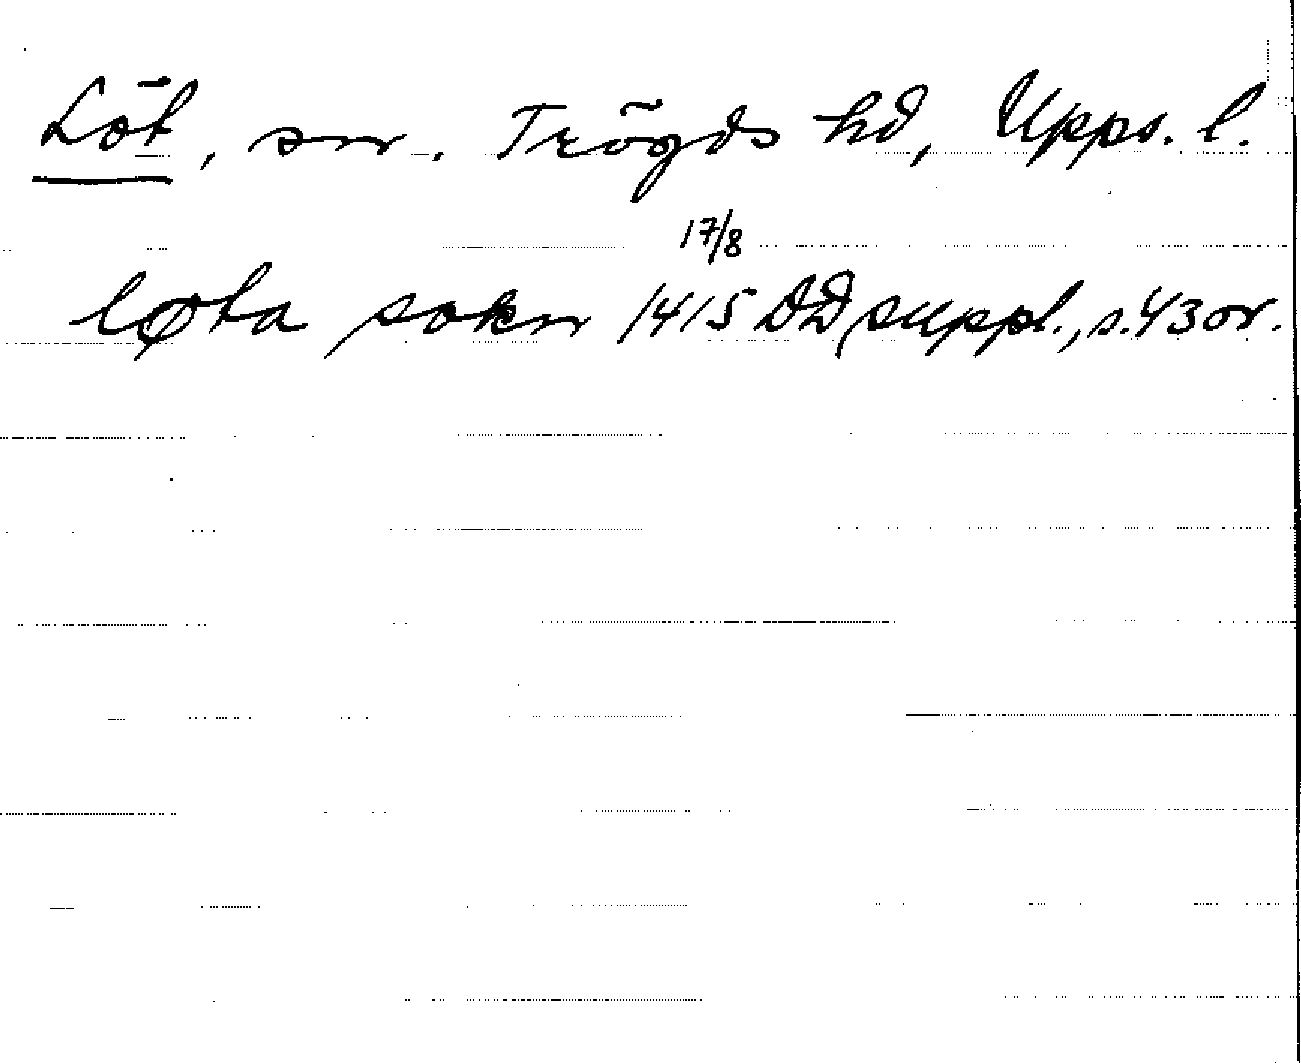 Löt, sn. Trögds hd, Upps. l.
17/8
løta sokn 1415 DD suppl., s. 43 or.